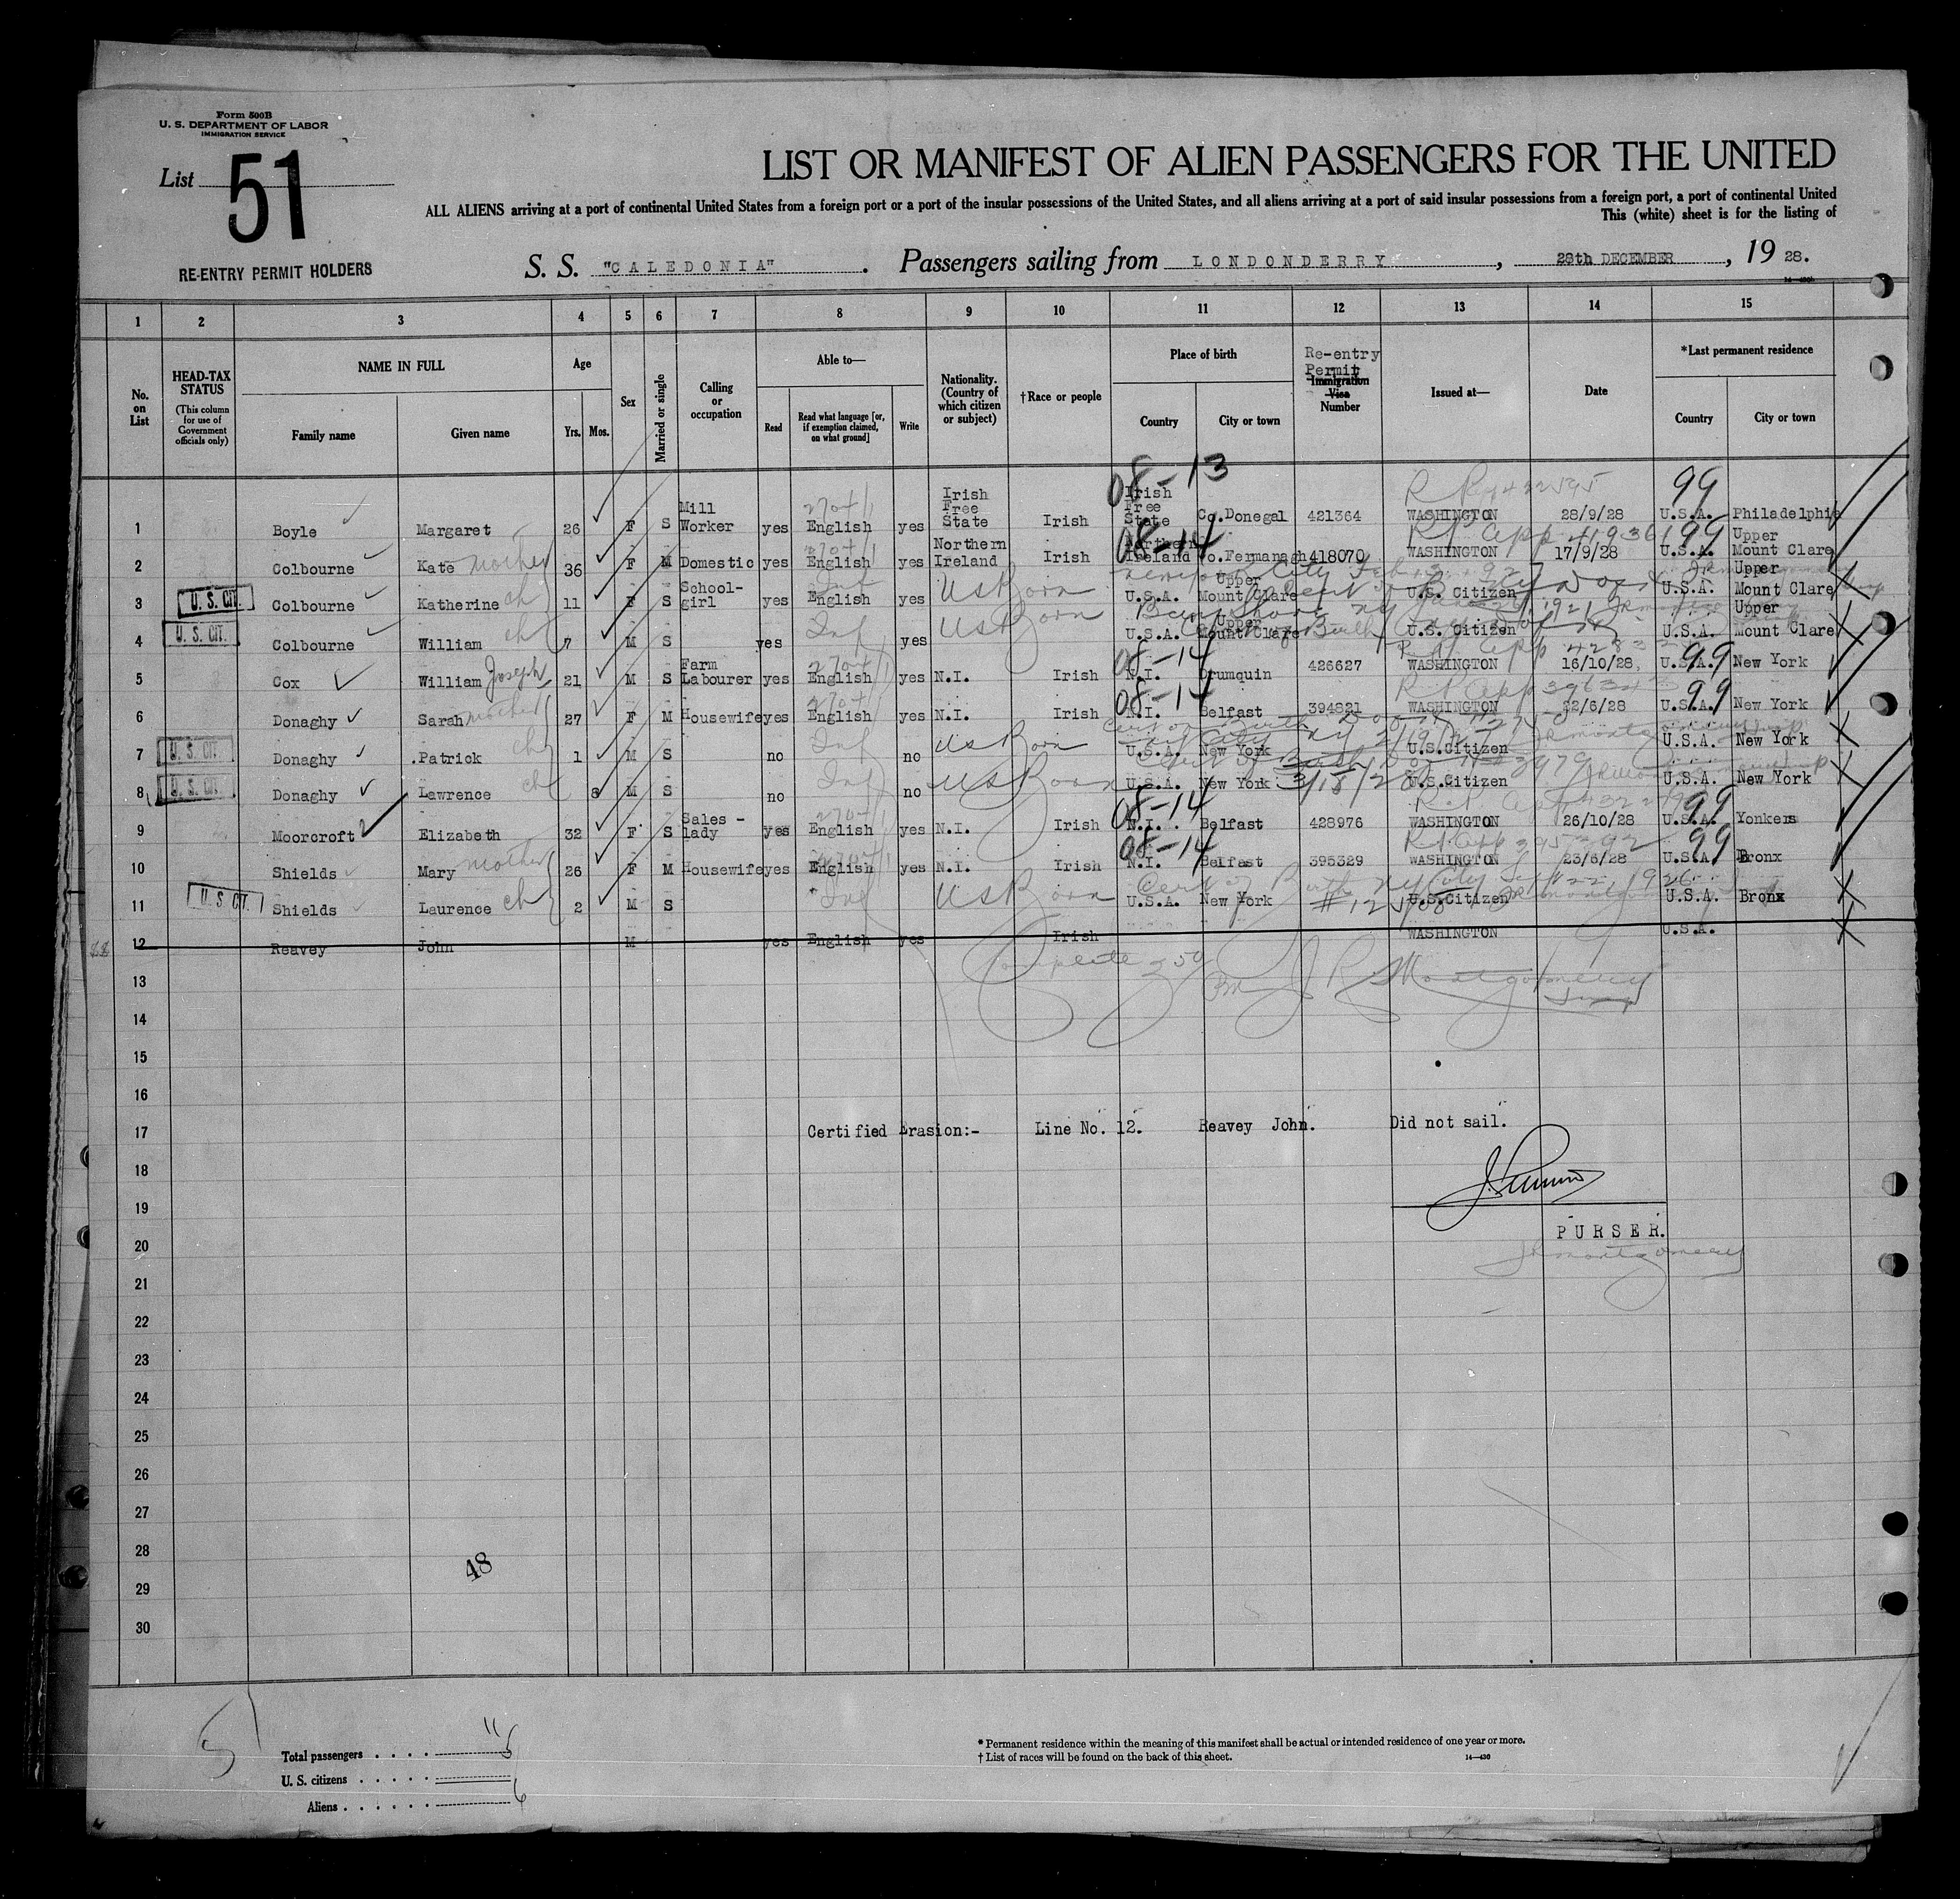 Form 500B
U. S. DEPARTMENT OF LABOR
IMMIGRATION SERVICE
List 51
RE-ENTRY PERMIT HOLDERS
LIST OR MANIFEST OF ALIEN PASSENGERS FOR THE UNITED
ALL ALIENS arriving at a port of continental United States from a foreign port or a port of the insular possessions of the United States, and all aliens arriving at a port of said insular possessions from a foreign port, a port of continental United
This (white) sheet is for the listing of
S. S. "CALEDONIA". Passengers sailing from LONDONDERRY, 28th DECEMBER, 19 28.
1 2 3 4 5 6 7 8 9 10 11 12 13 14 15
No. on List
HEAD-TAX STATUS (This column for use of Government officials only)
NAME IN FULL Family name Given name
Age Yrs. Mos.
Sex
Married or single
Calling or occupation
Able to— Read Read what language [or, if exemption claimed, on what ground] Write
Nationality. (Country of which citizen or subject)
†Race or people
Place of birth Country City or town
Re-entry Permit Immigration Visa Number
Issued at—
Date
*Last permanent residence Country City or town
1 Boyle Margaret 26 F S Mill Worker yes English yes Irish Free State Irish Irish Free State Co.Donegal 421364 WASHINGTON 28/9/28 U.S.A. Philadelphia 08-13 99
2 Colbourne Kate mother 36 F M Domestic yes English yes Northern Ireland Irish Northern Ireland Co.Fermanagh 418070 WASHINGTON 17/9/28 U.S.A. Upper Mount Clare 08-14 99
U. S. CIT. 3 Colbourne Katherine ch 11 F S School-girl yes English yes US Born U.S.A. Upper Mount Clare U.S. Citizen U.S.A. Upper Mount Clare
U. S. CIT. 4 Colbourne William ch 7 M S yes Inf yes US Born U.S.A. Upper Mount Clare U.S. Citizen U.S.A. Upper Mount Clare
5 Cox William Joseph 21 M S Farm Labourer yes English yes N.I. Irish N.I. Drumquin 426627 WASHINGTON 16/10/28 U.S.A. New York 08-14 99
6 Donaghy Sarah mother 27 F M Housewife yes English yes N.I. Irish N.I. Belfast 394821 WASHINGTON 22/6/28 U.S.A. New York 08-14 99
U. S. CIT. 7 Donaghy Patrick ch 1 M S no Inf no US Born U.S.A. New York U.S.Citizen U.S.A. New York
U. S. CIT. 8 Donaghy Lawrence ch 8 M S no Inf no US Born U.S.A. New York 3/15/28 U.S.Citizen U.S.A. New York
9 Moorcroft Elizabeth 32 F S Sales-lady yes English yes N.I. Irish N.I. Belfast 428976 WASHINGTON 26/10/28 U.S.A. Yonkers 08-14 99
10 Shields Mary mother 26 F M Housewife yes English yes N.I. Irish N.I. Belfast 395329 WASHINGTON 23/6/28 U.S.A. Bronx 08-14 99
U. S. CIT. 11 Shields Laurence ch 2 M S Inf US Born U.S.A. New York U.S.Citizen U.S.A. Bronx
12 Reavey John M yes English yes Irish WASHINGTON U.S.A.
13
J R Montgomery
14
15
16
17 Certified Erasion:- Line No. 12. Reavey John. Did not sail.
18
19
20 PURSER.
JR Montgomery
21
22
23
24
25
26
27
28
48
29
30
Total passengers . . . . 11
U. S. citizens . . . . . 5
Aliens . . . . . . 6
* Permanent residence within the meaning of this manifest shall be actual or intended residence of one year or more.
† List of races will be found on the back of this sheet.
14—430